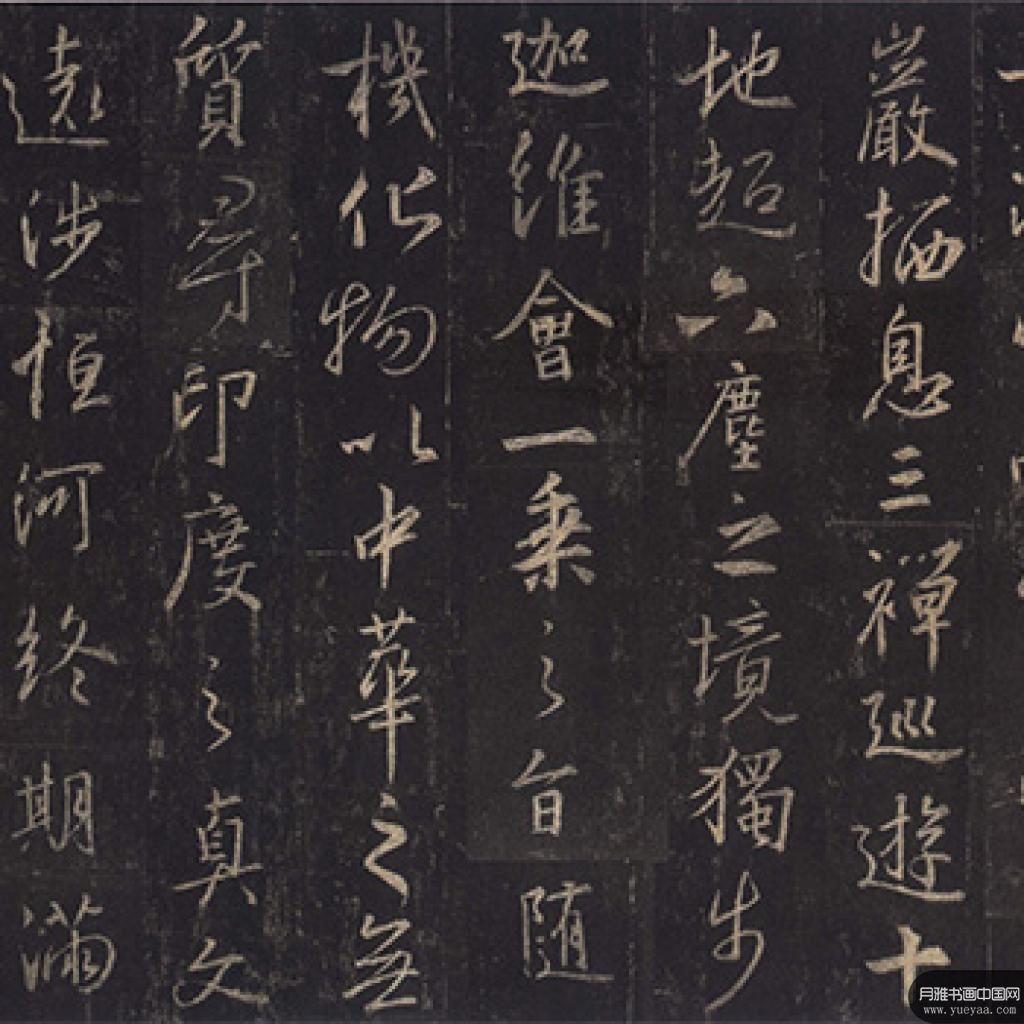 巖栖息三禪巡遊十
地超六塵之境獨步
迦維會一乘之旨随
機化物以中華之無
質尋印度之真文
遠涉恒河終期滿
月雅书画中国网
www.yueyaa.com